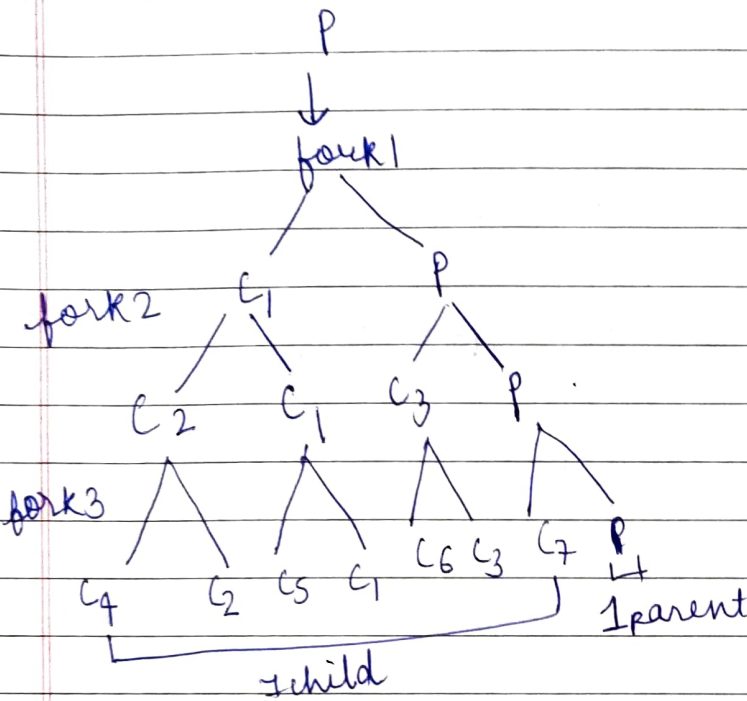 P
fork1
C1 P
fork2
C2 C1 C3 P
fork3
C4 C2 C5 C1 C6 C3 C7 P
1parent
7child